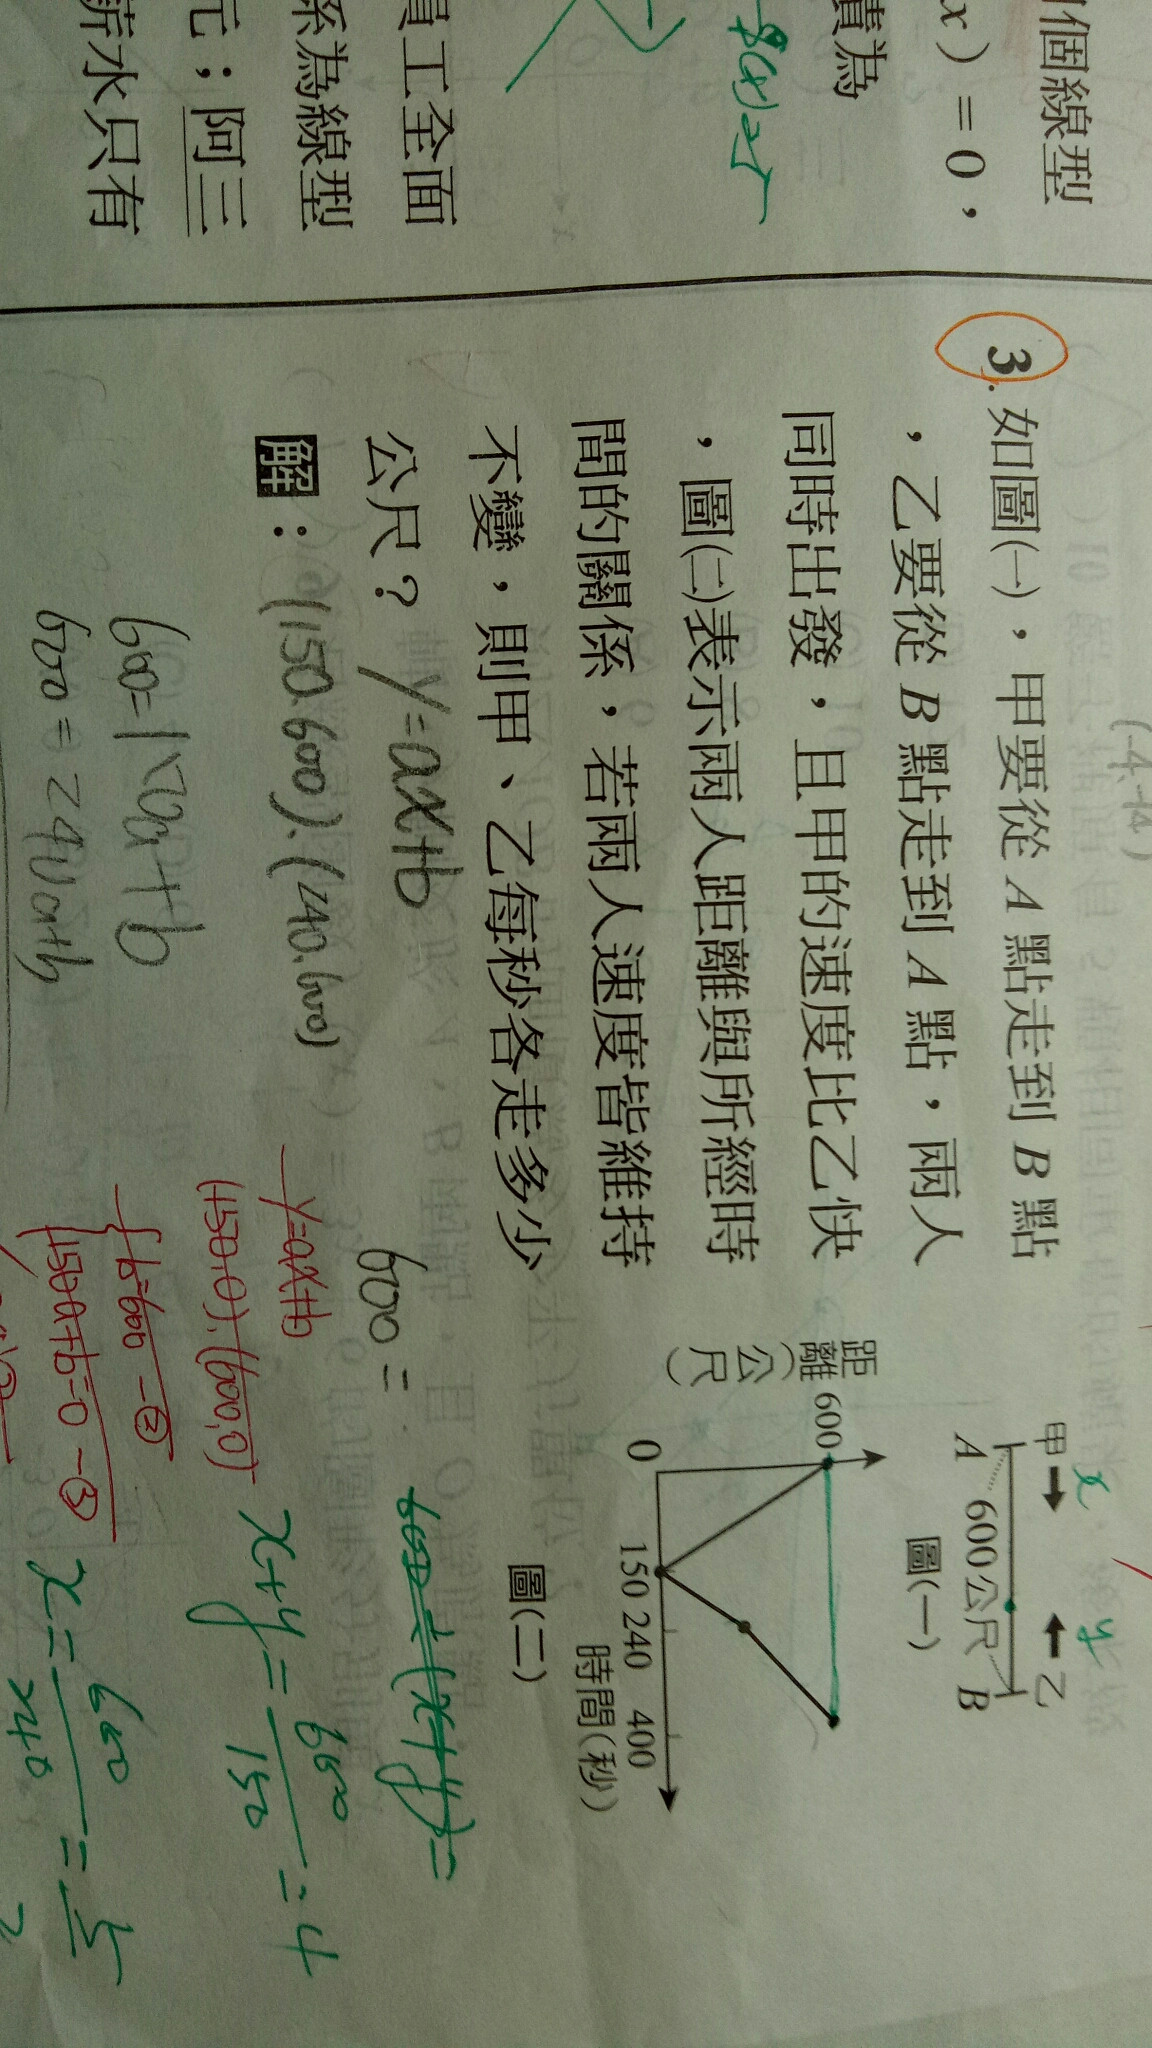 個線型
x）= 0，
積為
f(x)=5
員工全面
係為線型
元；阿三
薪水只有
(-4,4)
3. 如圖(一)，甲要從 A 點走到 B 點
，乙要從 B 點走到 A 點，兩人
同時出發，且甲的速度比乙快
，圖(二)表示兩人距離與所經時
間的關係，若兩人速度皆維持
不變，則甲、乙每秒各走多少
公尺？
y=ax+b
解：
(150.600).(240.600)
600=150a+b
600=240a+b
x y
甲 乙
A 600公尺 B
圖(一)
距離(公尺)
600
0 150 240 400
時間(秒)
圖(二)
600 =
y=ax+b
(150,0).(600,0)
b=600 — ②
150a+b=0 — ①
x+y = 600/150 = 4
x = 600/240 = 5/2